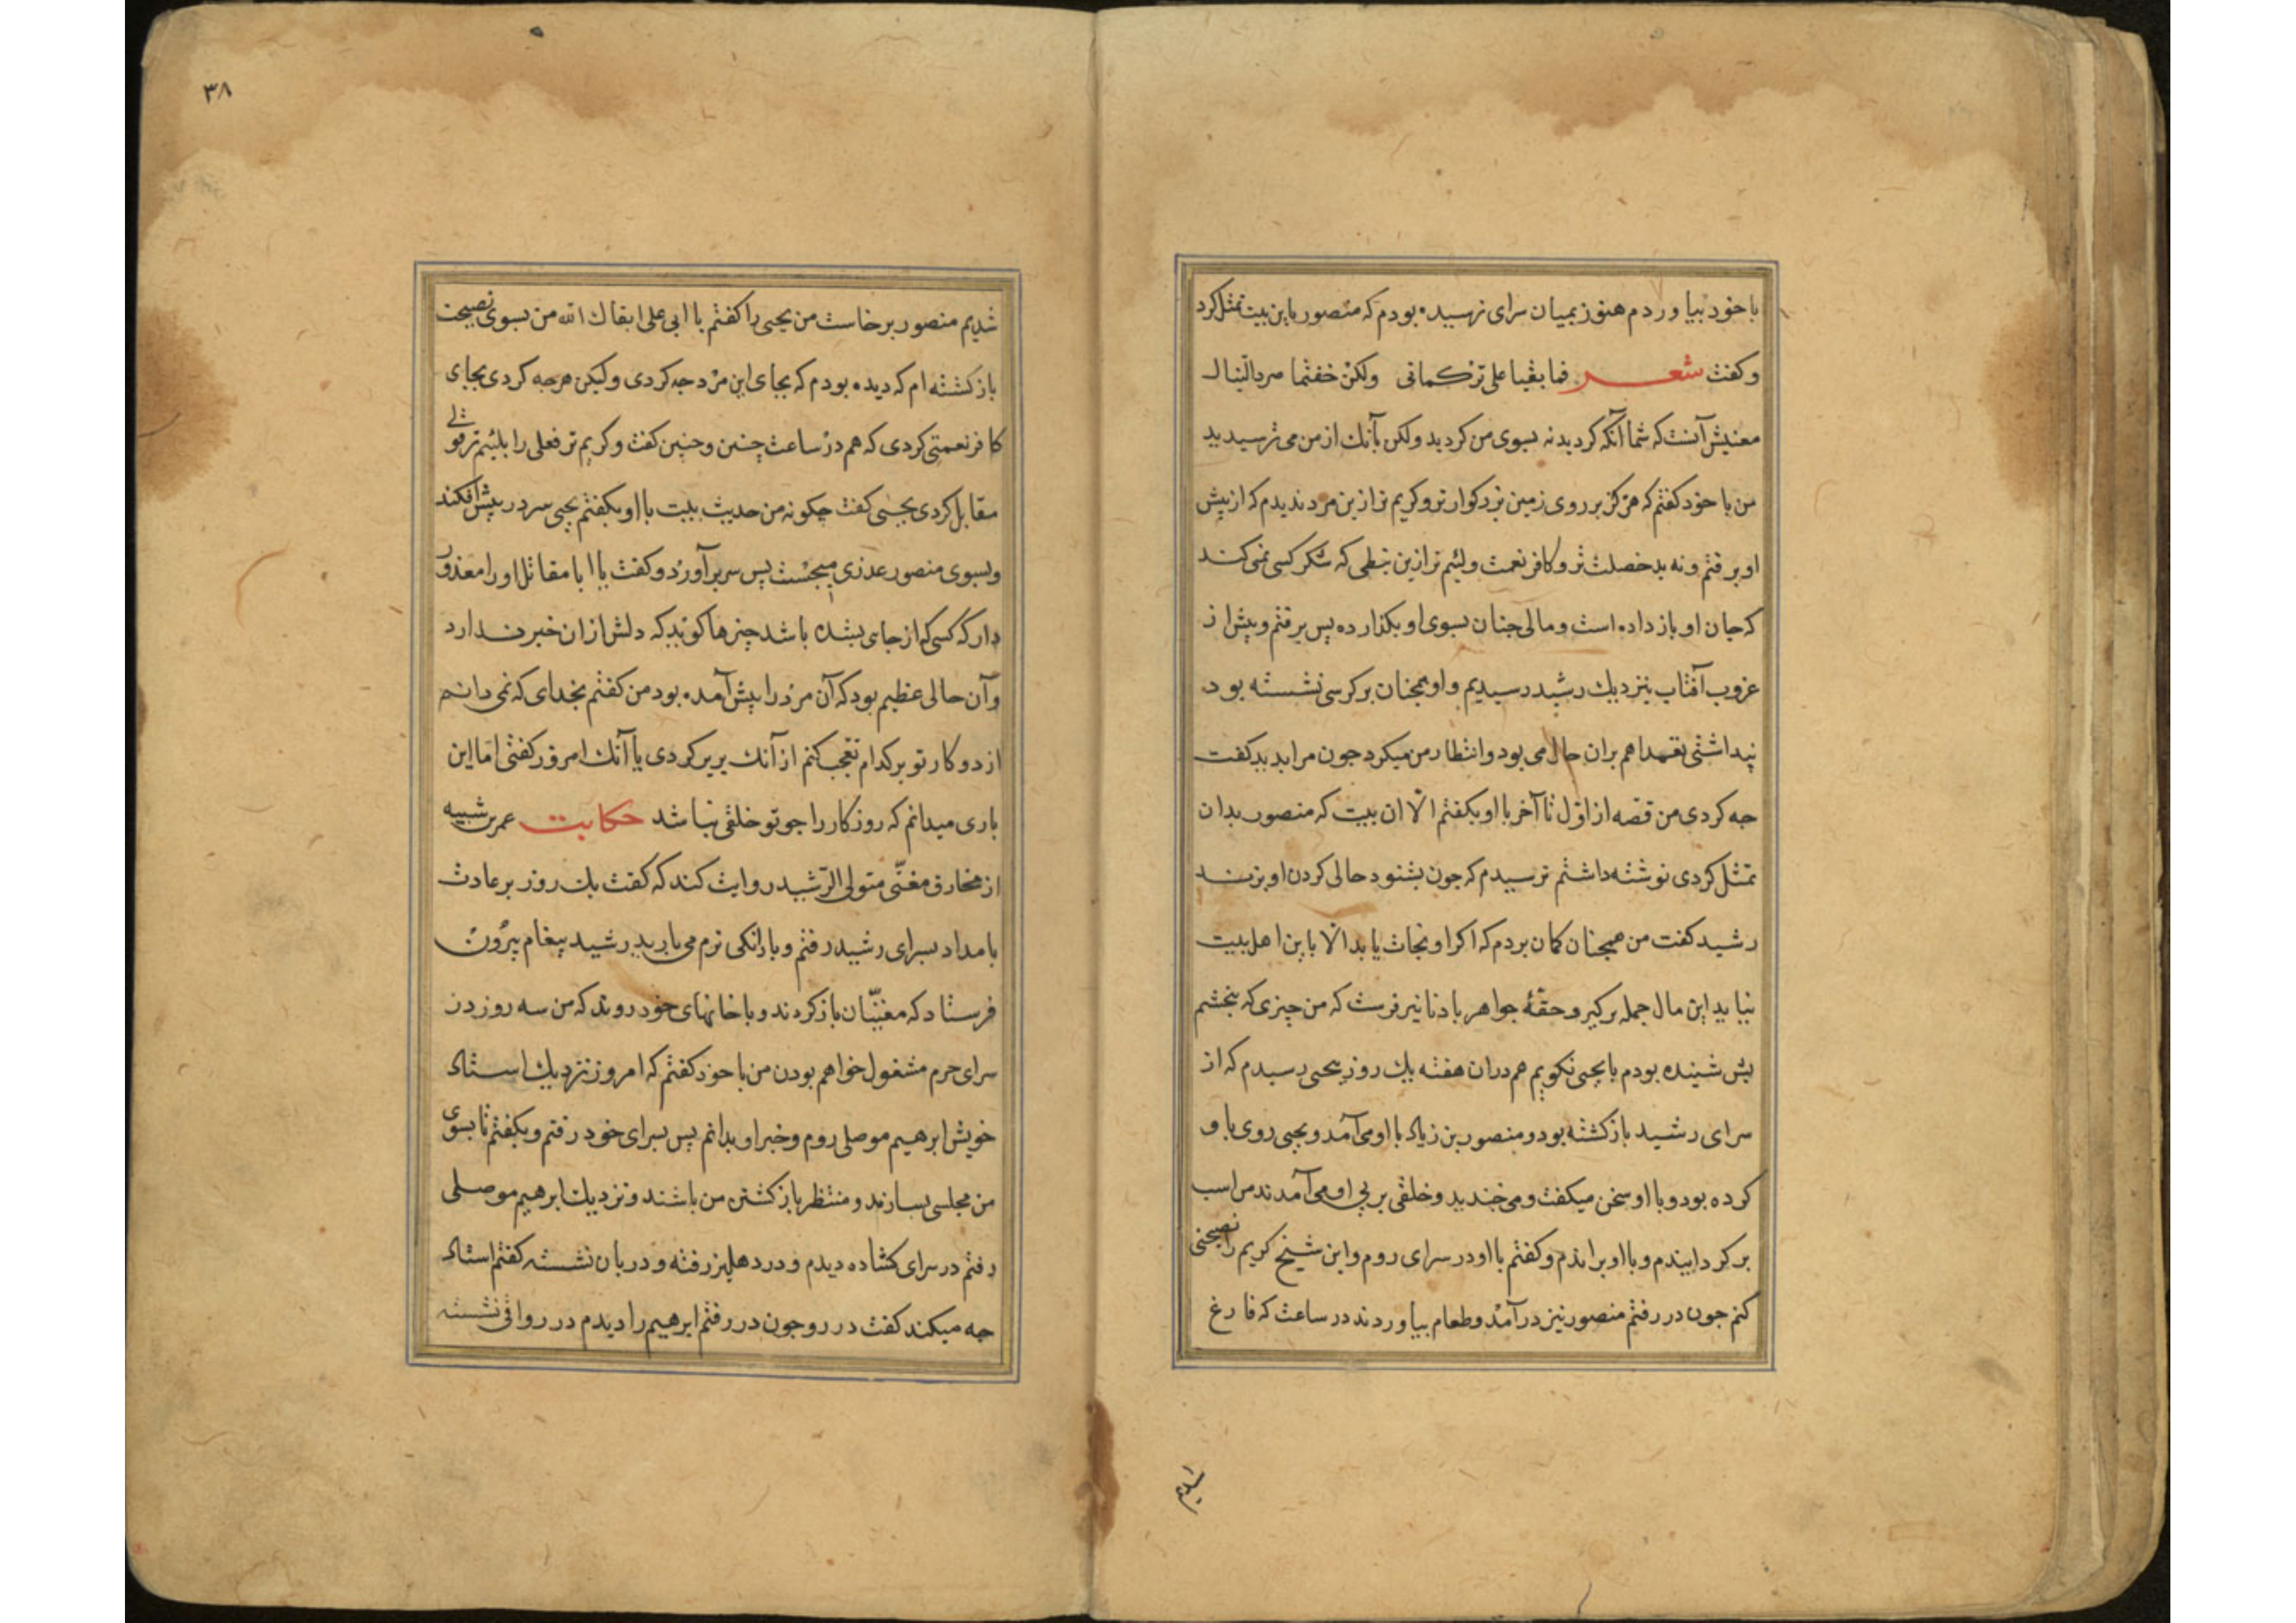 با خود بیاوردم هنوز بمیان سرای نرسیده بودم که منصور باین بیت تمثل کرد
وکفت شعر فما بقیا علی ترکتمانی ولکن خفتما صرد النبال
معنیش آنست که شما آنکه کردید نه بسوی من کردید ولکن بآنك از من می ترسیدید
من با خود کفتم که هرکز بر روی زمین بزرکوارتر و کریم تر ازین مرد ندیدم که از پیش
او برفتم ونه بد خصلت تر وکافر نعمت ولئیم تر ازین نبطی که شکر کسی نمی کند
که جان او باز داده است ومالی چنان بسوی او بکذارده پس برفتم وپیش از
غروب آفتاب بنزدیك رشید رسیدیم واو همچنان بر کرسی نشسته بود
پنداشتی تعمدا هم بران حال می بود وانتظار من میکرد جون مرا بدید کفت
جه کردی من قصه از اول تا آخر با او بکفتم الا ان بیت که منصور بدان
تمثل کردی نوشته داشتم ترسیدم که جون بشنود حالی کردن او بزند
رشید کفت من همچنان کمان بردم که اکر او نجات یابد الا باین اهل بیت
نیابد این مال جمله برکیر وحقهٔ جواهر با دنانیر فرست که من چیزی که بخشم
پش شنیده بودم با یحیی نکویم هم دران هفته یك روز بیحیی رسیدم که از
سرای رشید بازکشته بود ومنصور بن زیاد با او می آمد ویحیی روی باو
کرده بود وبا او سخن میکفت ومی خندید وخلقی بر پی او می آمدند من اسب
برکردانیدم وبا او براندم وکفتم با او در سرای روم واین شیخ کریم را نصیحتی
کنم جون در رفتم منصور نیز در آمد وطعام بیاوردند در ساعت که فارغ
۳۸
شدیم منصور برخاست من یحیی را کفتم یا ابی علی ابقاك الله من بسوی نصیحت
بازکشته ام که دیده بودم که بجای این مرد جه کردی ولیکن هرجه کردی بجای
کافر نعمتی کردی که هم در ساعت چنین وچنین کفت وکریم تر فعلی را بلئیم تر قولی
مقابل کردی یحیی کفت چکونه من حدیث بیت با او بکفتم یحیی سر در پیش افکند
وبسوی منصور عذری میجست پس سر بر آورد وکفت یا ابا مقاتل او را معذور
دار که کسی که از جای بشده باشد چیزها کوید که دلش ازان خبر ندارد
وآن حالی عظیم بود که آن مرد را پیش آمده بود من کفتم بخدای که نمی دانم
از دو کار تو بر کدام تعجب کنم از آنك بریر کردی یا آنك امروز کفتی اما این
باری میدانم که روزکار را جو تو خلقی نباشد حکایت عمر بن شبیه
از مخارق مغنّی متولی الرّشید روایت کند که کفت یك روز بر عادت
بامداد بسرای رشید رفتم وبارانکی نرم می بارید رشید پیغام بیرون
فرستاد که مغنیّان بازکردند وبا خانهای خود روند که من سه روز در
سرای حرم مشغول خواهم بودن من با خود کفتم که امروز نزدیك استاد
خویش ابرهیم موصلی روم وخبر او بدانم پس بسرای خود رفتم وبکفتم تا بسوی
من مجلسی بسازند ومنتظر بازکشتن من باشند ونزدیك ابرهیم موصلی
رفتم در سرای کشاده دیدم ودر دهلیز رفته ودربان نشسته کفتم استاد
جه میکند کفت در رو جون در رفتم ابرهیم را دیدم در رواقی نشسته